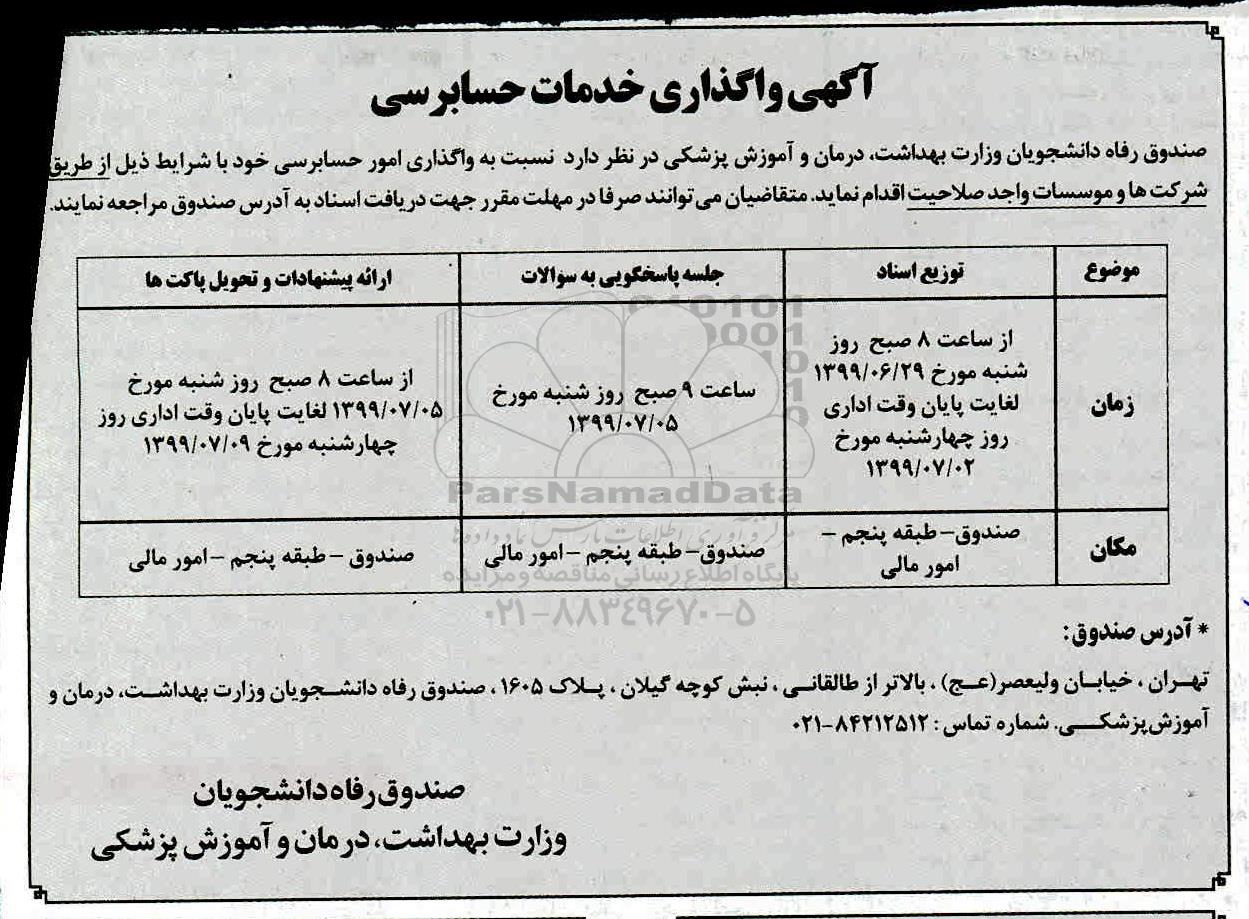 آگهی واگذاری خدمات حسابرسی
صندوق رفاه دانشجویان وزارت بهداشت، درمان و آموزش پزشکی در نظر دارد نسبت به واگذاری امور حسابرسی خود با شرایط ذیل از طریق
شرکت ها و موسسات واجد صلاحیت اقدام نماید. متقاضیان می توانند صرفا در مهلت مقرر جهت دریافت اسناد به آدرس صندوق مراجعه نمایند.
موضوع
توزیع اسناد
جلسه پاسخگویی به سوالات
ارائه پیشنهادات و تحویل پاکت ها
زمان
از ساعت ۸ صبح روز
شنبه مورخ ۱۳۹۹/۰۶/۲۹
لغایت پایان وقت اداری
روز چهارشنبه مورخ
۱۳۹۹/۰۷/۰۲
ساعت ۹ صبح روز شنبه مورخ
۱۳۹۹/۰۷/۰۵
از ساعت ۸ صبح روز شنبه مورخ
۱۳۹۹/۰۷/۰۵ لغایت پایان وقت اداری روز
چهارشنبه مورخ ۱۳۹۹/۰۷/۰۹
مکان
صندوق – طبقه پنجم –
امور مالی
صندوق – طبقه پنجم – امور مالی
صندوق – طبقه پنجم – امور مالی
ParsNamadData
مرکز فرآوری اطلاعات پارس نماد داده ها
پایگاه اطلاع رسانی مناقصه و مزایده
۰۲۱-۸۸۳۴۹۶۷۰-۵
* آدرس صندوق:
تهران ، خیابان ولیعصر(عج) ، بالاتر از طالقانی ، نبش کوچه گیلان ، پلاک ۱۶۰۵ ، صندوق رفاه دانشجویان وزارت بهداشت، درمان و
آموزش پزشکی. شماره تماس : ۸۴۲۱۲۵۱۲-۰۲۱
صندوق رفاه دانشجویان
وزارت بهداشت، درمان و آموزش پزشکی